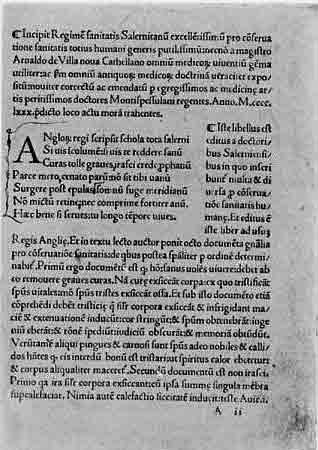 Incipit Regimē sanitatis Salernitanū excellētissimū pro cōserua
tione sanitatis totius humani generis putilissimū: necnō a magistro
Arnaldo de Villa noua Cathellano omniū medicoꝝ uiuentiū gēma
utiliter: ac ſm omniū antiquoꝝ medicoꝝ doctrinā ueraciter expo
situ: nouiter correctū ac emendatū p egregissimos ac medicinę ar
tis peritissimos doctores Montispessulani regentes. Anno. M.cccc.
lxxx. pdicto loco actu morā trahentes.
Anglorꝝ regi scripsit schola tota salerni
Si uis īcolumē: si uis te reddere sanū
Curas tolle graues, irasci crede pphanū
Parce mero, cenato parū: nō sit tibi uanū
Surgere post epulas: somnū fuge meridianū
Nō mictū retine, nec comprime fortiter anū.
Hæc bene si serues: tu longo tēpore uiues.
Iste libellus est
editus a doctori
bus Salernīsi
bus in quo inseri
bunt multa & di
uersa p cōserua
tiōe sanitatis hu
manę. Et editus ē
iste liber ad usū
Regis Anglię. Et in textu lectio auctor ponit octo documēta gńalia
pro cōseruatiōe sanitatis: de qbus postea spāliter p ordinē determi
nabit. Primū ergo documētū est q hōsanus uolēs uiuere: debet ab
eo remouere graues curas. Nā curę exsiccāt corpa: ex quo tristificāt
spūs uitales: tamō spūs tristes exsiccāt ossa. Et sub isto documēto etiā
cōprehēdi debēt tristicię q ipsi corpora exsiccāt & infrigidant: ma
ciē & extenuationē inducūt: cor strīngūt: & spūm obtenebrāt: inge
niū ebetāt: & rōnē īpediūt: iudiciū obscurāt: & memoriā obtūdūt.
Verūtamē aliqui pingues & carnosi sunt
& corpus aliqualiter maceret. Secundū documentū est non irasci.
Primo qa ira siſr corpora exsiccat: membra
supcalefaciat. Nimia autē calefactio siccitatē inducit: teste Auic. i.
A ii